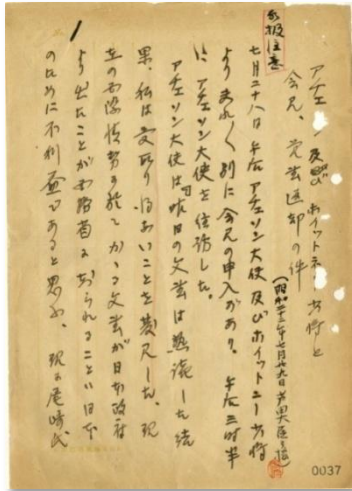 取扱注意
アチェソン及びホイットネー少将と
会見、覚書返却の件
(昭和二十二年七月廿九日芦田大臣口授)
七月二十八日午后アチェソン大使及びホイットニー少将
より夫々別に会見の申入があり、午后三時半
に、アチェソン大使を往訪した。
アチェソン大使は「昨日の文書は熟議した結
果、私は受取り得ないことを発見した。現
在の国際情勢に於てかゝる文書が日本政府
より出たことが外部に知られることは日本
のために不利益であると思ふ、現に尾崎氏
0037